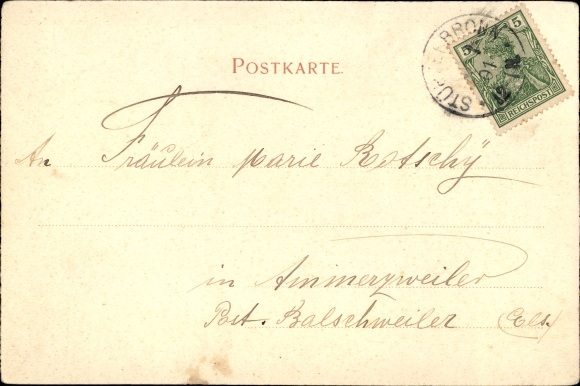 POSTKARTE.
5 5
REICHSPOST
An Fräulein Marie Kotschÿ
in Ammerzweiler
Post. Balschweiler (Els.)